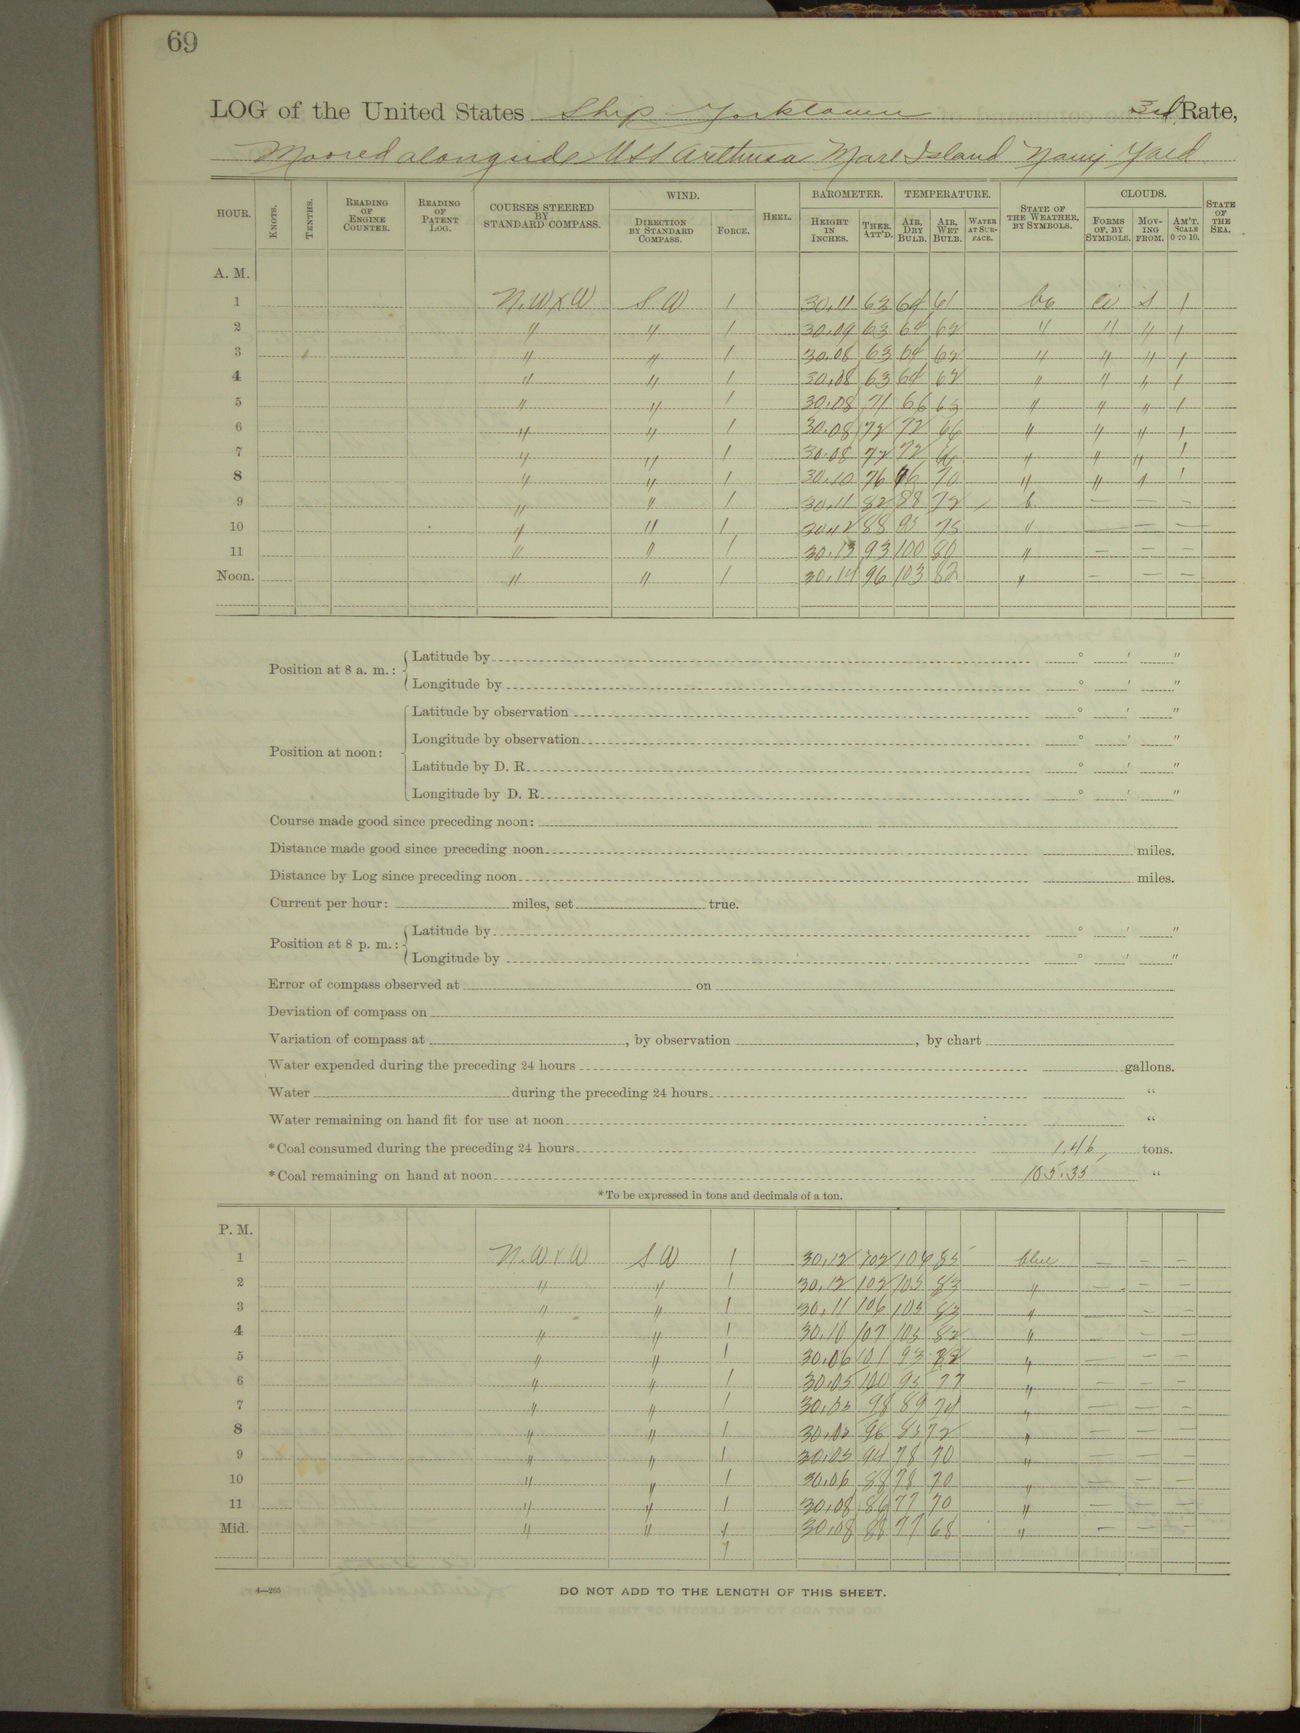 69
LOG of the United States Ship Yorktown 3rd Rate,
Moored alongside USS Arethusa Mare Island Navy Yard
HOUR. KNOTS. TENTHS. READING OF ENGINE COUNTER. READING OF PATENT LOG. COURSES STEERED BY STANDARD COMPASS. WIND. DIRECTION BY STANDARD COMPASS. FORCE. HEEL. BAROMETER. HEIGHT IN INCHES. THER. ATT'D. TEMPERATURE. AIR, DRY BULB. AIR, WET BULB. WATER AT SURFACE. STATE OF THE WEATHER, BY SYMBOLS. CLOUDS. FORMS OF, BY SYMBOLS. MOVING FROM. AM'T. SCALE 0 TO 10. STATE OF THE SEA.
A. M.
1 N.W x W S W 1 30.11 63 64 61 bc ci S 1
2 " " 1 30.09 63 64 62 " " " 1
3 " " 1 30.08 63 64 62 " " " 1
4 " " 1 30.08 63 64 62 " " " 1
5 " " 1 30.08 71 66 63 " " " 1
6 " " 1 30.08 72 72 66 " " " 1
7 " " 1 30.08 72 72 " " " 1
8 " " 1 30.10 76 70 " " " 1
9 " " 1 30.11 82 88 72 b. — — —
10 " " 1 88 75 " — — —
11 " " 1 30.13 93 100 80 " — — —
Noon. " " 1 30.14 96 103 82 " — — —
Position at 8 a. m.: Latitude by ° ' "
Longitude by ° ' "
Position at noon: Latitude by observation ° ' "
Longitude by observation ° ' "
Latitude by D. R. ° ' "
Longitude by D. R. ° ' "
Course made good since preceding noon:
Distance made good since preceding noon miles.
Distance by Log since preceding noon miles.
Current per hour: miles, set true.
Position at 8 p. m.: Latitude by ° ' "
Longitude by ° ' "
Error of compass observed at on
Deviation of compass on
Variation of compass at , by observation , by chart
Water expended during the preceding 24 hours gallons.
Water during the preceding 24 hours "
Water remaining on hand fit for use at noon "
*Coal consumed during the preceding 24 hours 1.46 tons.
*Coal remaining on hand at noon 105.35 "
*To be expressed in tons and decimals of a ton.
P. M.
1 N.W x W S W 1 30.12 102 106 85 blue — — —
2 " " 1 30.12 102 105 83 " — — —
3 " " 1 30.11 106 105 83 " — —
4 " " 1 30.10 107 105 82 " — — —
5 " " 1 30.06 101 93 " — — —
6 " " 1 30.05 100 95 77 " — — —
7 " " 1 98 89 74 " — — —
8 " " 1 30.02 96 85 72 " — — —
9 " " 1 30.05 94 78 70 " — — —
10 " " 1 30.06 88 78 70 " — — —
11 " " 1 30.08 86 77 70 " — — —
Mid. " " 1 30.08 77 68 " — — —
4—265 DO NOT ADD TO THE LENGTH OF THIS SHEET.